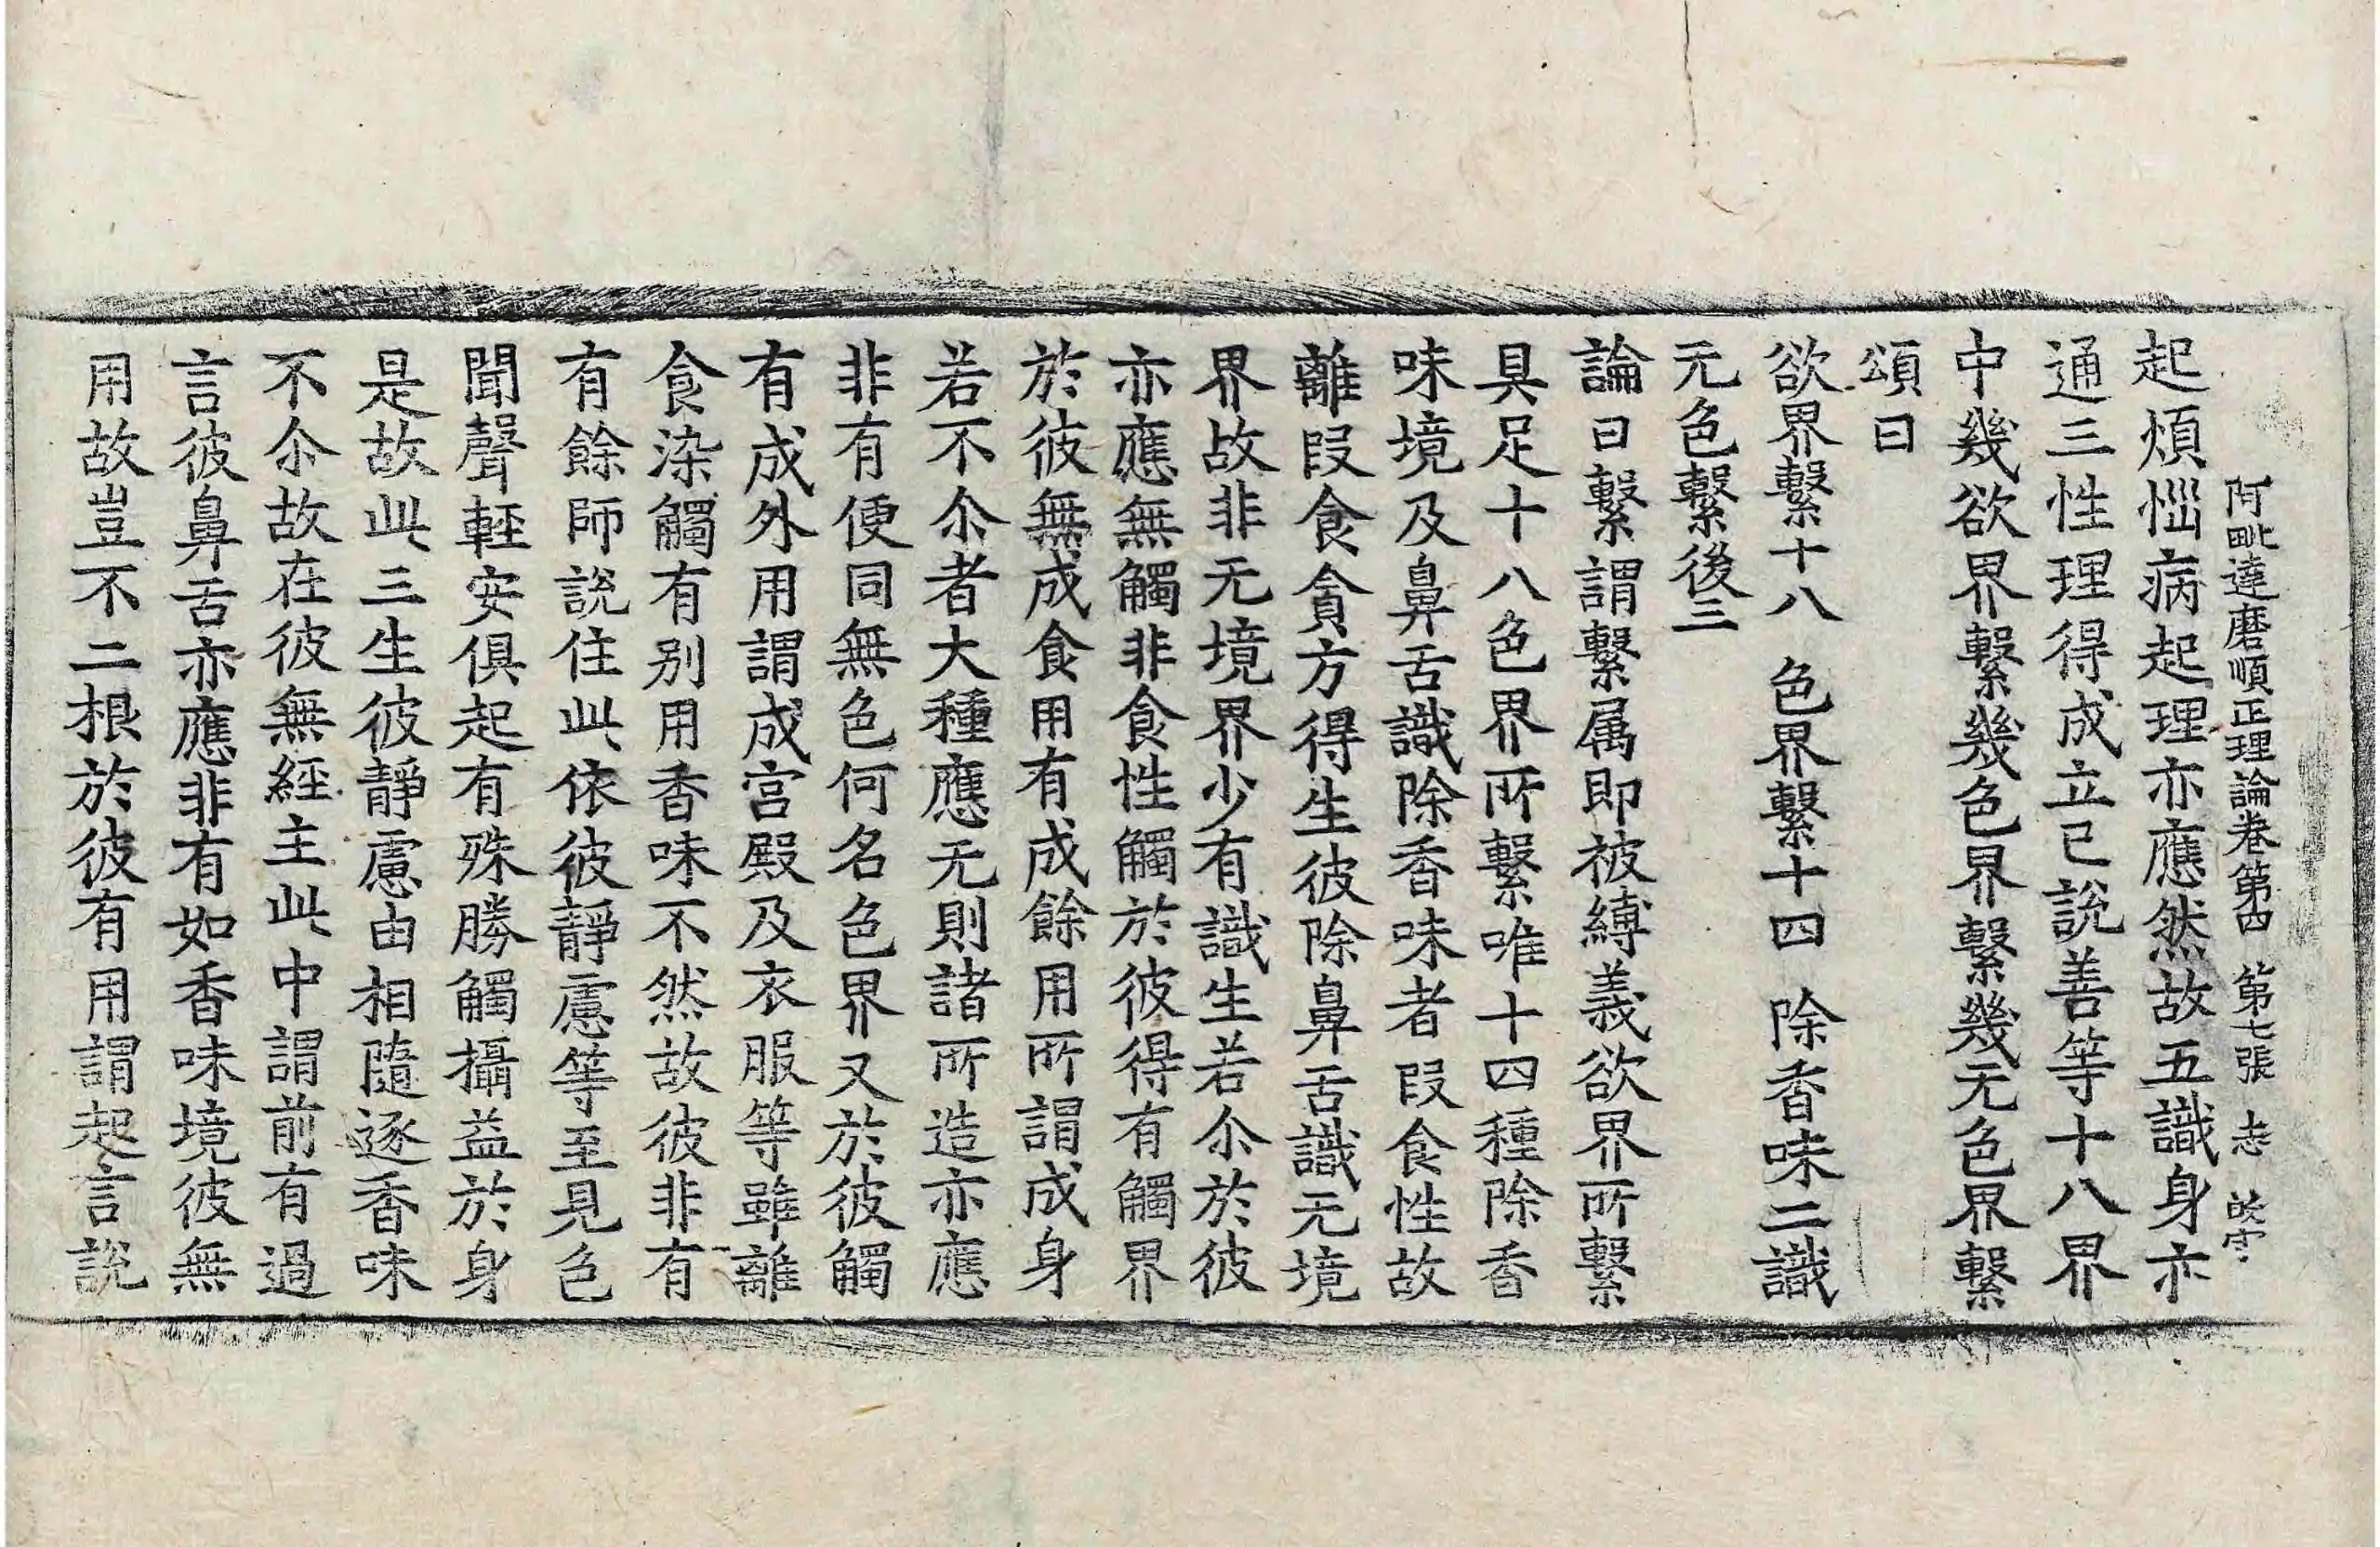 阿毗達磨順正理論卷第四 第七張 志
起煩惱病起理亦應然故五識身亦
通三性理得成立已說善等十八界
中幾欲界繫幾色界繫幾无色界繫
頌曰
欲界繫十八 色界繫十四 除香味二識
无色繫後三
論曰繫謂繫属即被縛義欲界所繫
具足十八色界所繫唯十四種除香
味境及鼻舌識除香味者段食性故
離段食貪方得生彼除鼻舌識无境
界故非无境界少有識生若尒於彼
亦應無觸非食性觸於彼得有觸界
於彼無成食用有成餘用所謂成身
若不尒者大種應无則諸所造亦應
非有便同無色何名色界又於彼觸
有成外用謂成宮殿及衣服等雖離
食染觸有别用香味不然故彼非有
有餘師說住此依彼靜慮等至見色
聞聲輕安俱起有殊勝觸攝益於身
是故此三生彼靜慮由相隨逐香味
不尒故在彼無經主此中謂前有過
言彼鼻舌亦應非有如香味境彼無
用故豈不二根於彼有用謂起言說